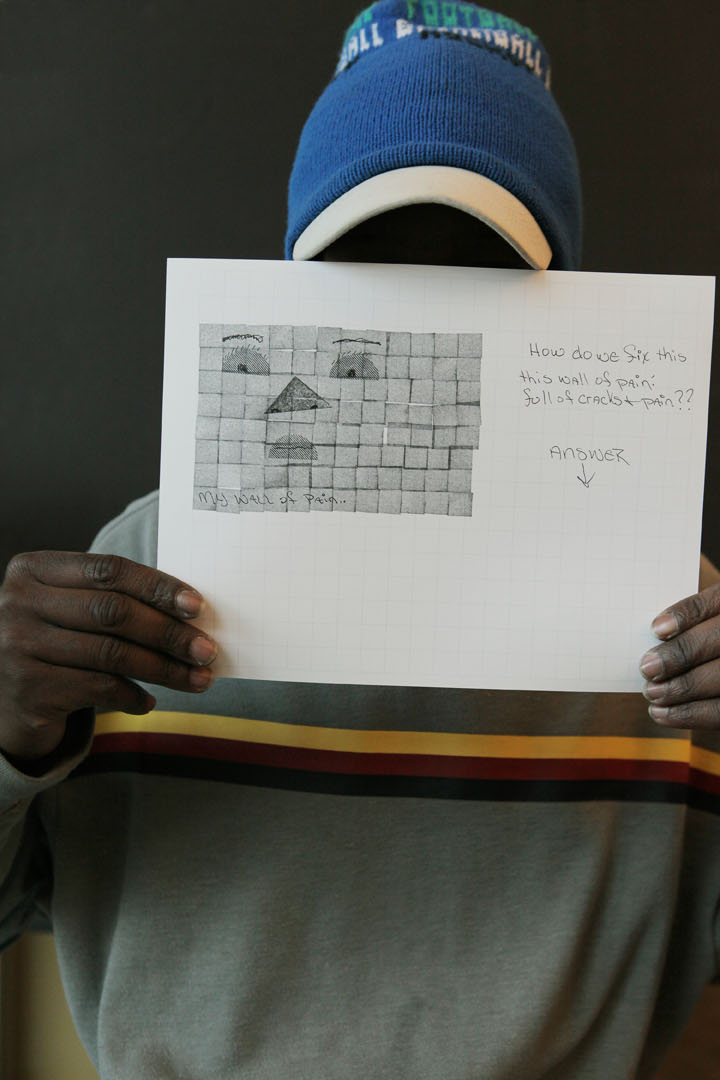 FOOTBALL
My WALL of PAIN..
How do we fix this
this wall of pain:
full of cracks + pain??
ANSWER